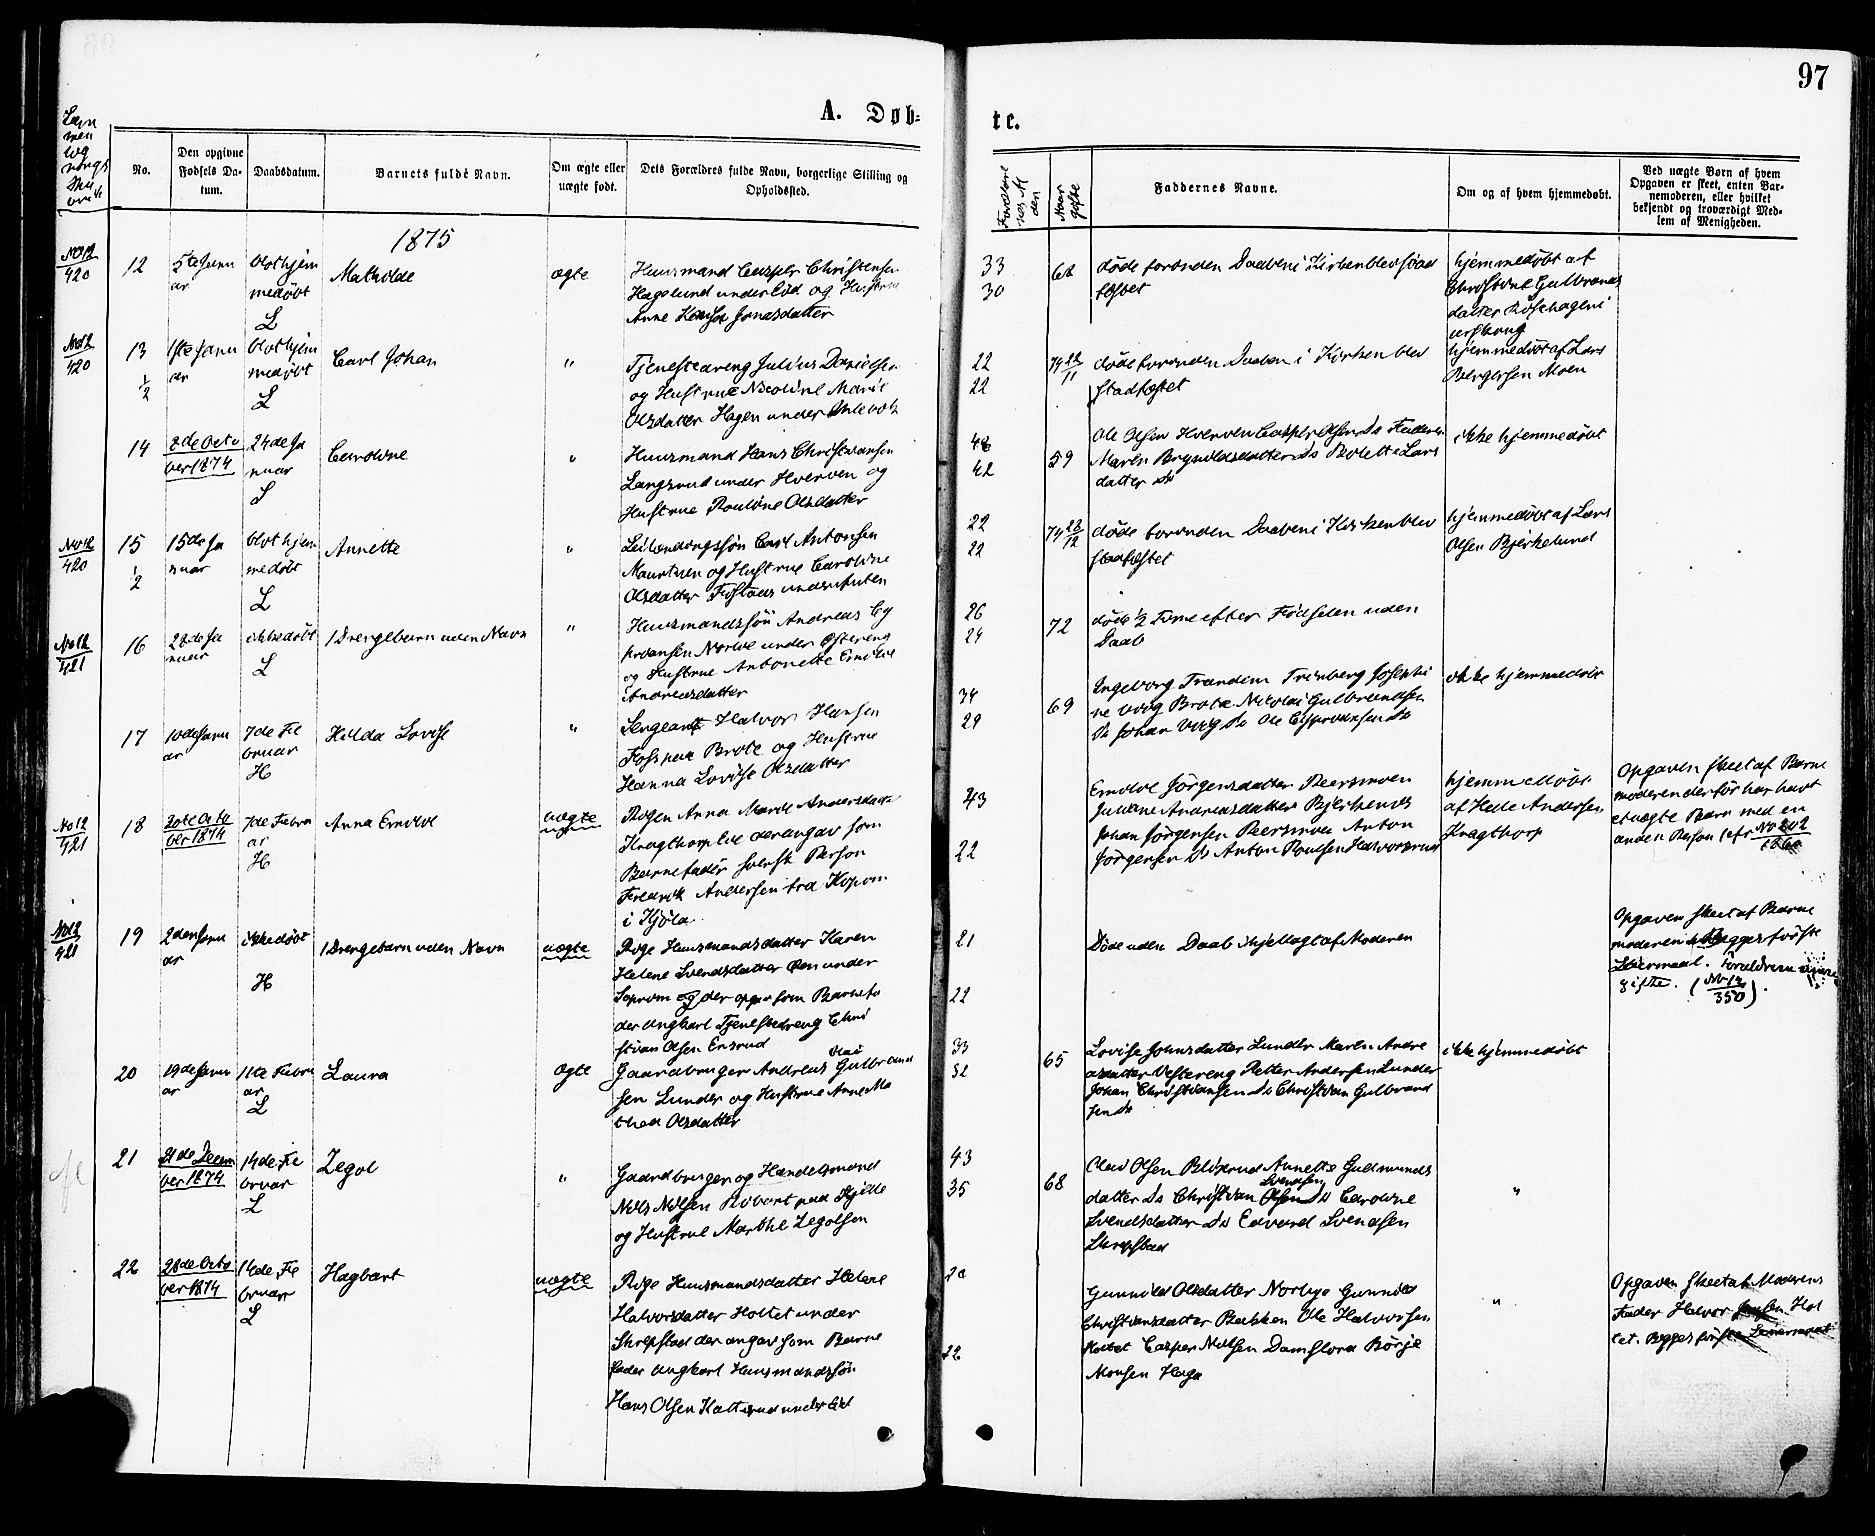 97
A. Døb-
te.
No.
Den opgivne Fødsels Da-
tum.
Daabsdatum.
Barnets fulde Navn.
Om ægte eller
uægte født.
Dets Forældres fulde Navn, borgerlige Stilling og
Opholdssted.
Faddernes Navne.
Om og af hvem hjemmedøbt.
Ved uægte Børn af hvem
Opgaven er skeet, enten Bar-
nemoderen, eller hvilket
bekjendt og troværdigt Med-
lem af Menigheden.
1875
No 12
420
12
5te Janu
ar
blot hjem
medøbt
L
Mathilde
ægte
Huusmand Casper Christensen
Hagelund under Eid og Hustru
Anne Jonasdatter
33
30
68
døde forinden Daaben i Kirken blev stad
fæstet
hjemmedøbt af
Christine Gulbrands
datter
No 12
420
13
1/2
1ste Janu
ar
blot hjem
medøbt
L
Carl Johan
"
Tjenestedreng Julius Danielsen
og Hustrue Nicoline Marie
Olsdatter Hagen under
22
22
74 22/11
døde forinden Daaben i Kirken blev
stadfæstet
hjemmedøbt af Lars
Bergersen Moen
14
8de Octo
ber 1874
24de Ja
nuar
L
Caroline
"
Huusmand Hans Christiansen
Langsrud under Hverven og
Hustrue Pauline Olsdatter
48
42
59
Ole Olsen Hverven Casper Olsen Ds Faderen
Maren Brynildsdatter Ds Bolette Lars
datter Ds
ikke hjemmedøbt
No 12
420
15
1/2
15de Ja
nuar
blot hjem
medøbt
L
Annette
"
Leilændingsøn Carl Antonsen
og Hustrue Caroline
Olsdatter under
22
22
74 22/12
døde forinden Daaben i Kirken blev
stadfæstet
hjemmedøbt af Lars
Olsen Bjerkelund
No 12
421
16
28de Ja
nuar
ikke døbt
L
1 Drengebarn uden Navn
"
Huusmandssøn Andreas Cy
priansen Norlie under Østereng
og Hustrue Antonette Emilie
Andreasdatter
26
24
72
døde 1/2 Time efter Fødselen uden
Daab
17
10de Janu
ar
7de Fe
bruar
H
Hilda Lovise
"
Sergeant Halvor Hansen
Brote og Hustrue
Hanna Lovise Olsdatter
34
29
69
Ingeborg Josephi
ne Brote Nikolai Gulbrandsen
Ds Johan Ds Ole Ds
ikke hjemmedøbt
No 12
421
18
30te Octo
ber 1874
7de Febru
ar
H
Anna Emilie
uægte
Pigen Anna Marie Andersdatter
Kragthorp Eie der angav som
Barnefader svensk Person
Fredrik Andersen fra
i Kjøla
43
22
Emilie Jörgensdatter Peersmoen
Juliane Andreasdatter Bjerkenes
Johan Jörgensen Peersmoen Anton
Jörgensen Ds Anton Poulsen Halvorsrud
hjemmedøbt
af Helle Andersen
Kragthorp
Opgaven skeet af Barne
moderen der før har havt
et uægte Barn med en
anden Person
No 12
421
19
2den Janu
ar
ikke døbt
H
1 Drengebarn uden Navn
uægte
Pige Huusmandsdatter Karen
Helene Svendsdatter under
og der opgav som Barnefa
der Ungkarl Tjenestedreng Chri
stian Olsen Ensrud
21
22
Døde uden Daab ihjellagt af Moderen
Opgaven skeet af Barne
moderen Begges første
Leiermaal. Forældrene
gifte. (No 12
350).
20
19de Janu
ar
11te Febru
ar
L
Laura
ægte
Gaardbruger Andreas Gulbrand
sen Lunder og Hustrue Anne Ma
thea Olsdatter
33
32
65
Lovise Johnsdatter Lunder Maren Andre
asdatter Vestereng Petter Andersen Lunder
Johan Christiansen Ds Christian Gulbrand
sen Ds
ikke hjemmedøbt
21
21de Decem
ber 1874
14de Fe
bruar
L
Zegol
"
Gaardbruger og Handelsmand
Nils Nilsen Robart paa Kjölle
og Hustrue Marthe Zegolsen
43
35
68
Olav Olsen Annette Gudmunds
Svendsen
datter Ds Christian Olsen Ds Caroline
Svendsdatter Ds Edvard Svendsen
Skrepstad
"
22
28de Octo
ber 1874
14de Fe
bruar
L
Hagbart
uægte
Pige Huusmandsdatter Helene
Halvorsdatter Holtet under
Skrepstad der angav som Barne
fader Ungkarl Huusmandssøn
Hans Olsen Katterud under Eid
20
22
Gunnild Olsdatter Norbye Gunnild
Christiansdatter Bakken Ole Halvorsen
Holtet Casper Nilsen Damflora Börje
Monsen Haga
"
Opgaven skeet af Moderens
Fader Halvor Jensen Hol
tet. Begges første Leiermaal